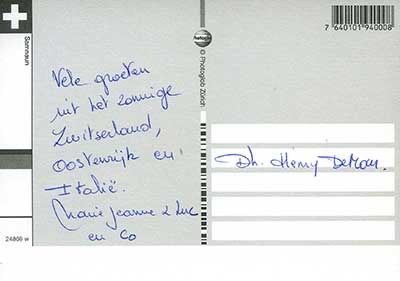 Samnaun
Vele groeten
uit het zonnige
Zwitserland,
Oostenrijk en
Italië.
Marie Jeanne & Luc
en Co
24806 w
© Photoglob Zürich
7 640101 940008
Dh. Hémy DeMan.